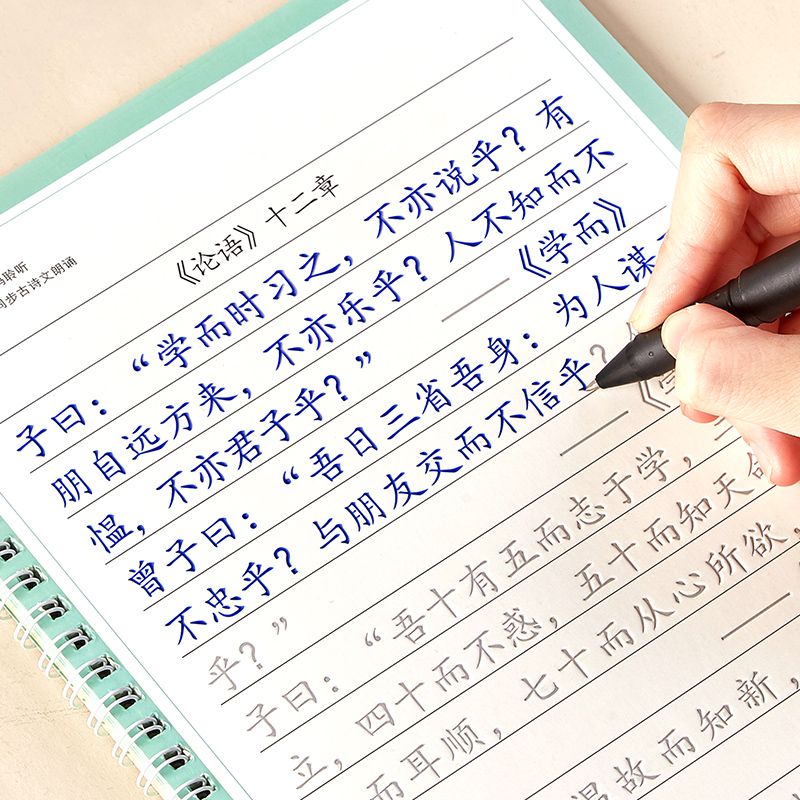 聆听
同步古诗文朗诵
《论语》十二章
子曰：“学而时习之，不亦说乎？有
朋自远方来，不亦乐乎？人不知而不
愠，不亦君子乎？” ——《学而》
曾子曰：“吾日三省吾身：为人谋
不忠乎？与朋友交而不信乎？
乎？” ——《学
子曰：“吾十有五而志于学，
立，四十而不惑，五十而知天命
而耳顺，七十而从心所欲，
——
温故而知新，